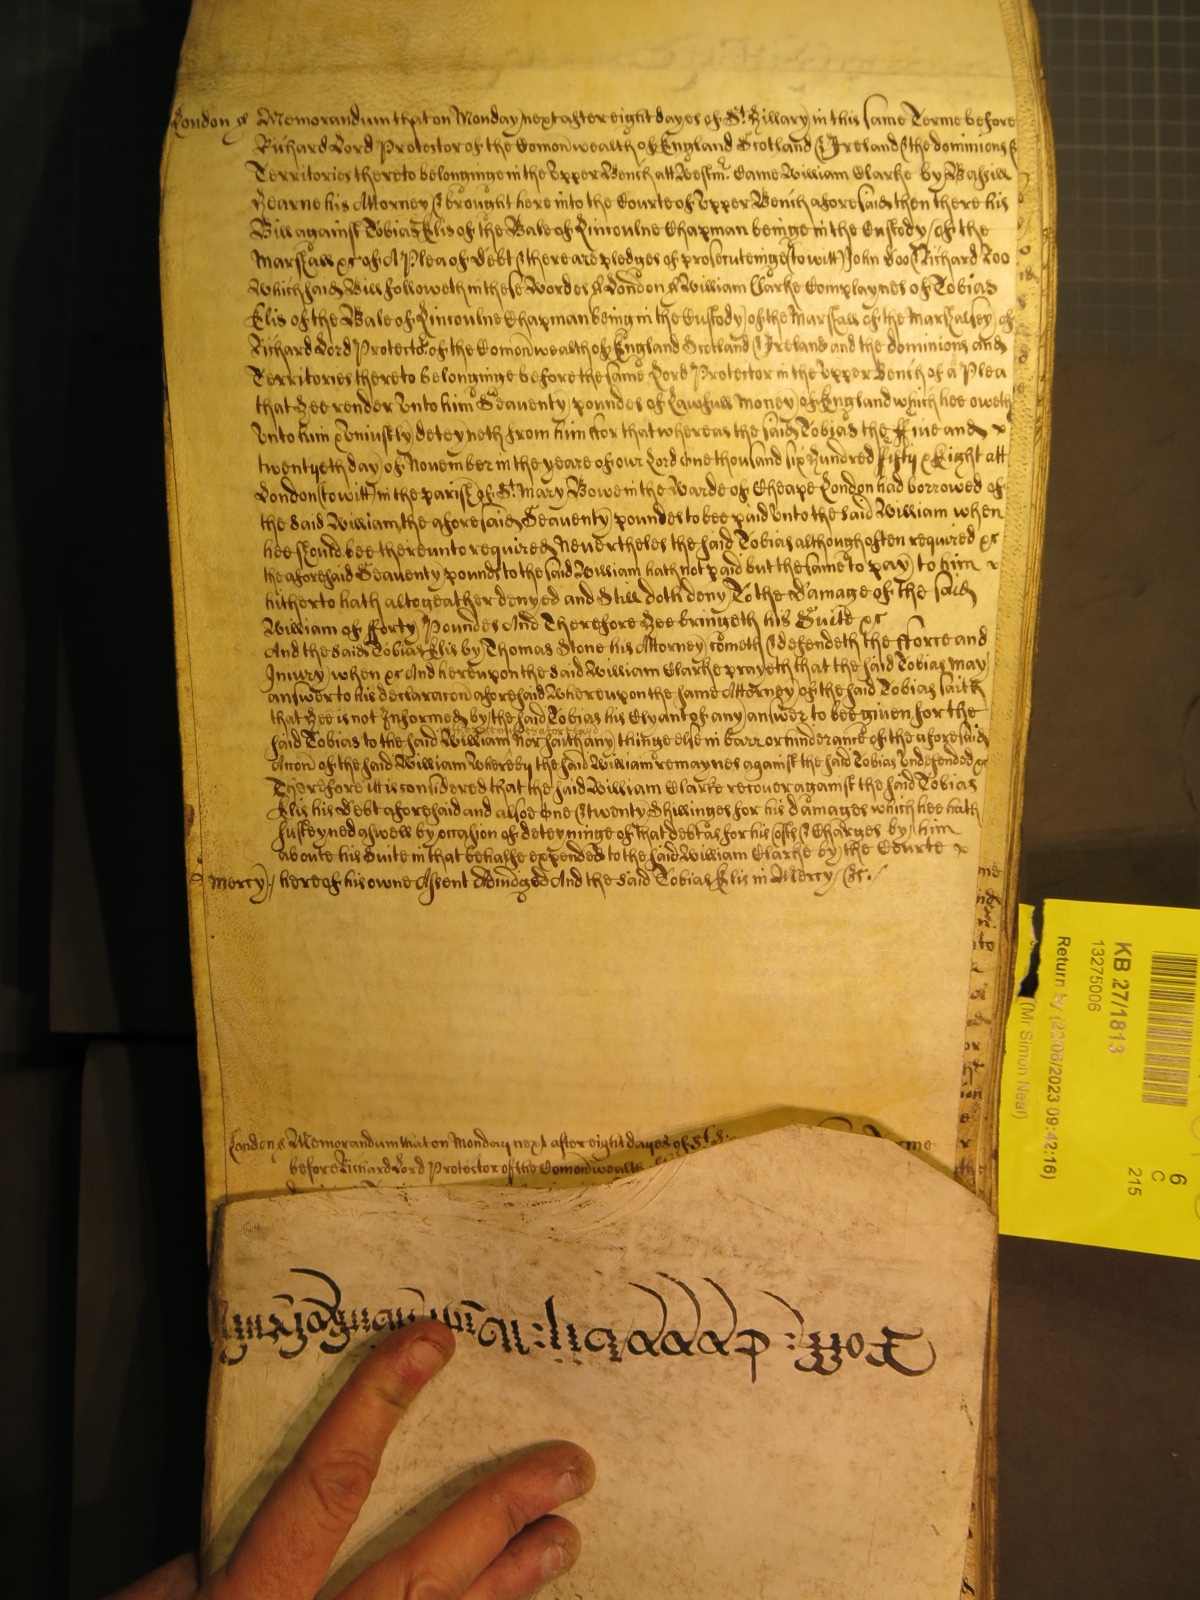 London ss Memorandum that on Monday next after eight dayes of St. Hillary in this same Terme before
Richard Lord Protector of the Comonwealth of England Scotland & Ireland & the dominions &
Territories thereto belonginge in the Upper Bench att Westmr. Came William Clarke by Basill
Hearne his Attorney & brought here into the Courte of Upper Bench aforesaid then there his
Bill against Tobias Elis of the Bale of Lincolne Chapman beinge in the Custody of the
Marshall &c of A Plea of debt & there are pledges of prosecuteinge to witt John Doo & Richard Roo
Which said Bill followeth in these Wordes ss London ss William Clarke Complaynes of Tobias
Elis of the Bale of Lincolne Chapman being in the Custody of the Marshall of the Marshalsey of
Richard Lord Protector of the Comonwealth of England Scotland & Ireland and the dominions and
Territories thereto belonginge before the same Lord Protector in the Upper Bench of a Plea
that Hee render unto him Seaventy poundes of Lawfull Money of England which hee oweth
Unto him & Uniustly deteyneth from him ffor that whereas the said Tobias the ffive and
twentyeth day of November in the yeare of our Lord one thousand six hundred fifty & Eight att
London to witt in the parish of St. Mary Bowe in the Warde of Cheape London had borrowed of
the said William the aforesaid Seaventy poundes to bee paid unto the said William when
hee should bee thereunto required Nevertheles the said Tobias although often required &c
the aforesaid Seaventy pounds to the said William hath not paid but the same to pay to him
hitherto hath altogeather denyed and Still doth deny To the damage of the said
William of fforty Poundes And Therefore Hee bringeth his Suite &c
And the said Tobias Elis by Thomas Stone his Attorney cometh & defendeth the fforce and
Iniury when &c And hereupon the said William Clarke prayeth that the said Tobias may
answer to his declaracon aforesaid Whereupon the same Attorney of the said Tobias saith
that Hee is not Informed by the said Tobias his Clyant of any answer to bee given for the
said Tobias to the said William Nor saith any thinge else in barr or hinderance of the aforesaid
Accon of the said William Whereby the said William remaynes against the said Tobias Undefended &c
Therefore itt is considered that the said William Clarke recover against the said Tobias
Elis his Debt aforesaid and alsoe one & twenty Shillinges for his damages which hee hath
susteyned aswell by occasion of deteyninge of that debt as for his costs & Charges by him
aboute his Suite in that behalfe expended to the said William Clarke by the Courte
Mercy hereof his owne Assent Adiudged And the said Tobias Elis in Mercy &c.
London ss Memorandum that on Monday next after eight dayes of St. Terme
before Richard Lord Protector of the Comonwealth
KB 27/1813
13275006
Return by (22/06/2023 09:42:16)
(Mr Simon Neal)
6
C
215